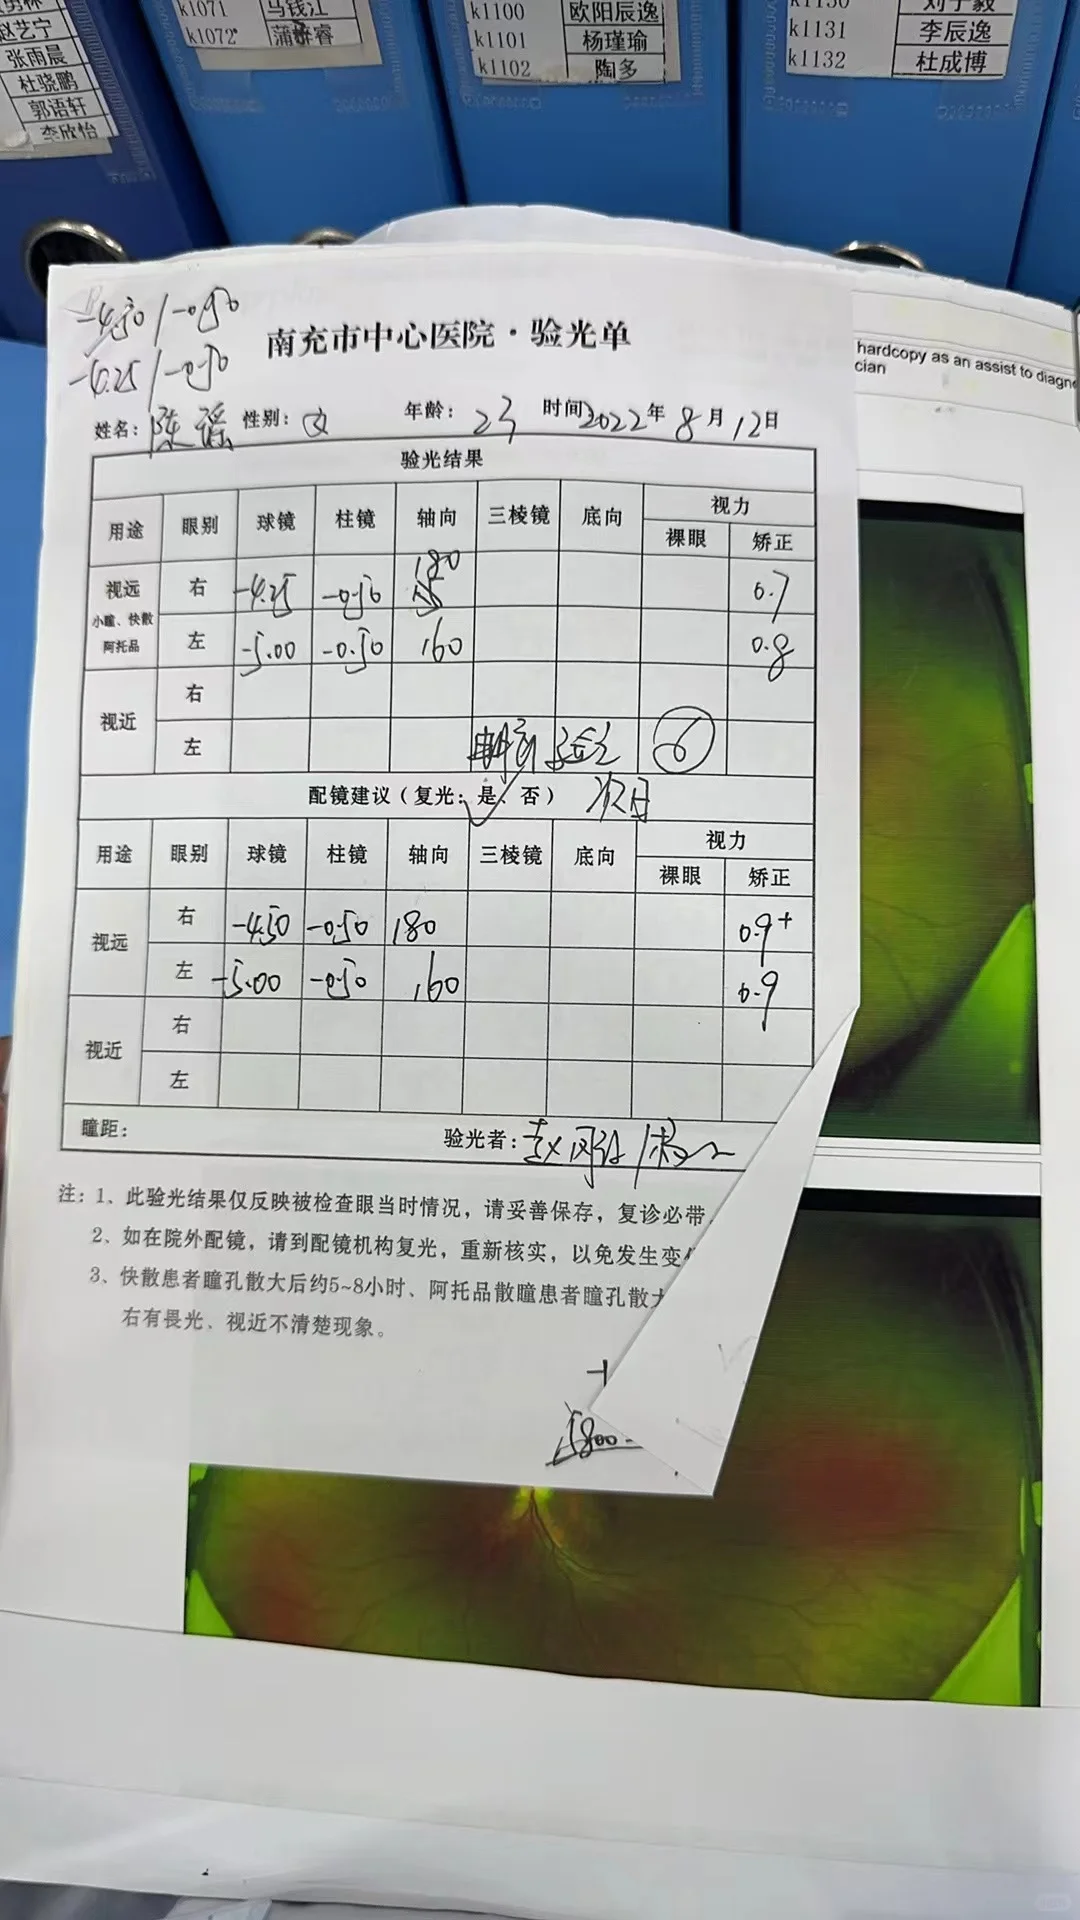 赵艺宁
张雨晨
杜骁鹏
郭语轩
李欣怡
k1071 马钱江
k1072
k1100 欧阳辰逸
k1101 杨瑾瑜
k1102 陶多
k1130 刘子毅
k1131 李辰逸
k1132 杜成博
-4.50/-0.50
-4.25/-0.50
南充市中心医院·验光单
姓名: 陈瑶 性别: 女 年龄: 23 时间2022年8月12日
验光结果
用途 眼别 球镜 柱镜 轴向 三棱镜 底向 视力
裸眼 矫正
180
视远 右 -4.25 -0.50 0.7
小瞳、快散
阿托品 左 -5.00 -0.50 160 0.8
视近 右
左 6
配镜建议(复光: 是、否) 次日
用途 眼别 球镜 柱镜 轴向 三棱镜 底向 视力
裸眼 矫正
视远 右 -4.50 -0.50 180 0.9+
左 -5.00 -0.50 160 0.9
视近 右
左
瞳距: 验光者:
注: 1、此验光结果仅反映被检查眼当时情况，请妥善保存，复诊必带
2、如在院外配镜，请到配镜机构复光，重新核实，以免发生变
3、快散患者瞳孔散大后约5~8小时、阿托品散瞳患者瞳孔散大
右有畏光、视近不清楚现象。
hardcopy as an assist to
cian